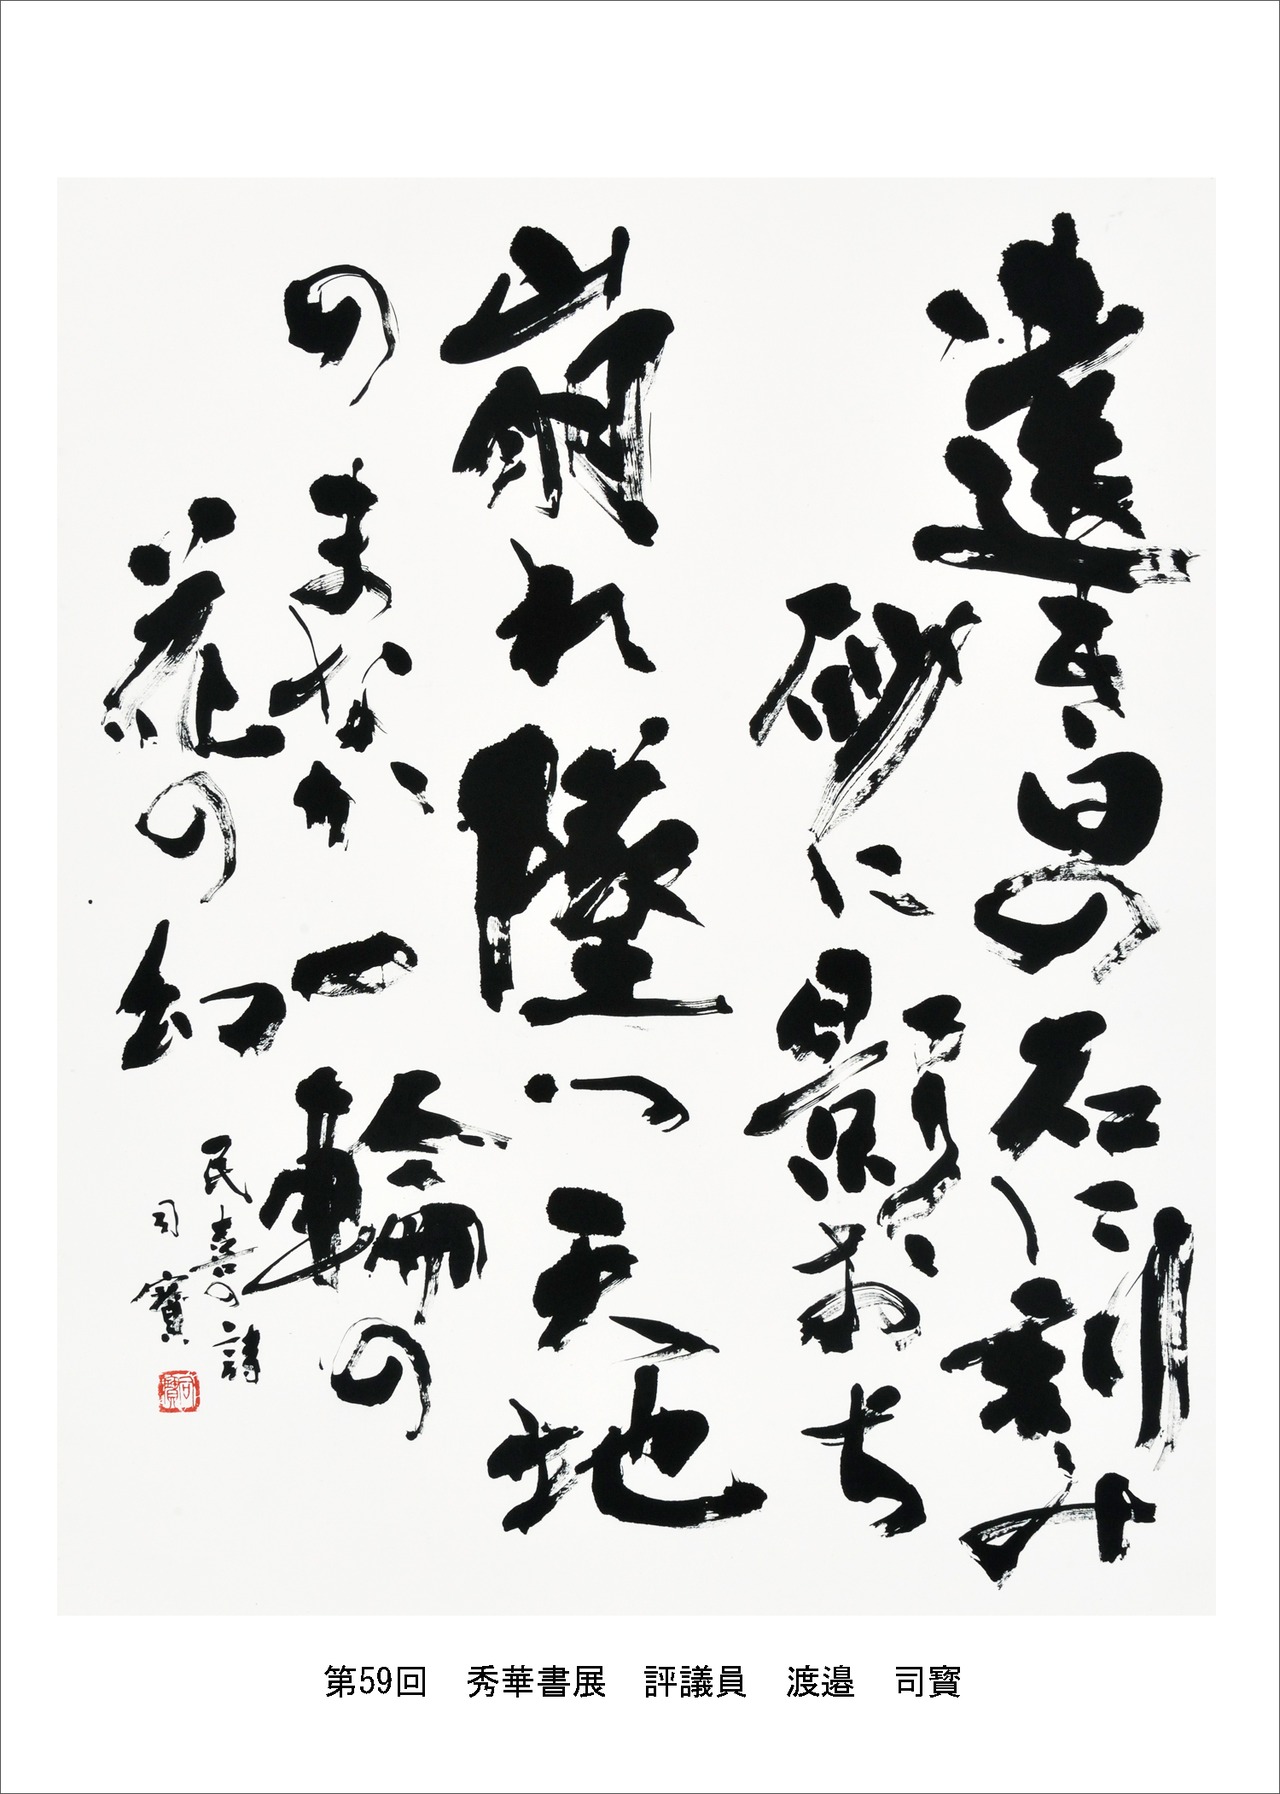 遠き日の石に刻み
砂に影おち
崩れ墜つ天地
のまなか一輪の
花の幻
民喜の詩
司寳
第59回　秀華書展　評議員　渡邉　司寳